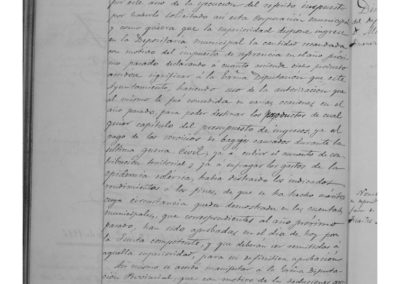 por este año de la ejecucion del referido impuesto
por haberlo solicitado asi esta Corporacion municipal
y como quiera que la superioridad dispone ingrese
en la Depositaria municipal la cantidad recaudada
con motivo del impuesto de referencia en el año
proximo pasado declarando á cuanto asciende dicho producto
acordose significar á la Excma Diputacion que este
Ayuntamiento, haciendo uso de la autorizacion que
al mismo le fue concedida en varias ocasiones en el
año pasado, para poder destinar los productos de cual
quier capitulo del presupuesto de ingresos, ya al
pago de los servicios de bagages causados durante la
última guerra civil, ya á cubrir el aumento de con-
tribucion territorial, ya á sufragar los gastos de la
epidemia colerica, habia destinado los indicados
rendimientos á los fines, de que se ha hecho mérito
cuya circunstancia queda demostrada en las cuentas
municipales, que correspondientes al año próximo
pasado, han sido aprobadas en el dia de hoy por
la Junta competente, y que deberan ser remitidas á
aquella superioridad, para su definitiva aprobacion
Asi mismo se acordó manifestar á la Excma Diputa-
cion Provincial, que con motivo de